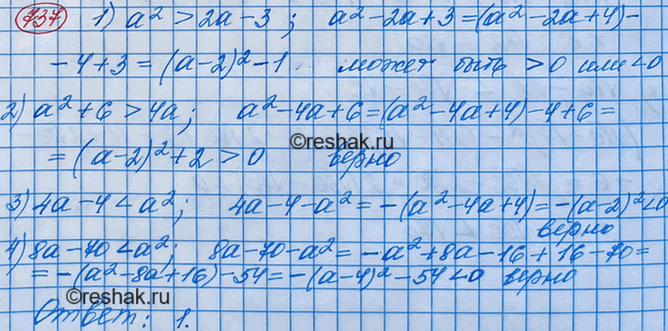 737 1) a² > 2a - 3; a² - 2a + 3 = (a² - 2a + 4) -
- 4 + 3 = (a - 2)² - 1 может быть > 0 или < 0
2) a² + 6 > 4a; a² - 4a + 6 = (a² - 4a + 4) - 4 + 6 =
©reshak.ru
= (a - 2)² + 2 > 0 верно
3) 4a - 4 < a²; 4a - 4 - a² = -(a² - 4a + 4) = -(a - 2)² < 0
верно
4) 8a - 70 < a²; 8a - 70 - a² = -a² + 8a - 16 + 16 - 70 =
= -(a² - 8a + 16) - 54 = -(a - 4)² - 54 < 0 верно
©reshak.ru
Ответ: 1.